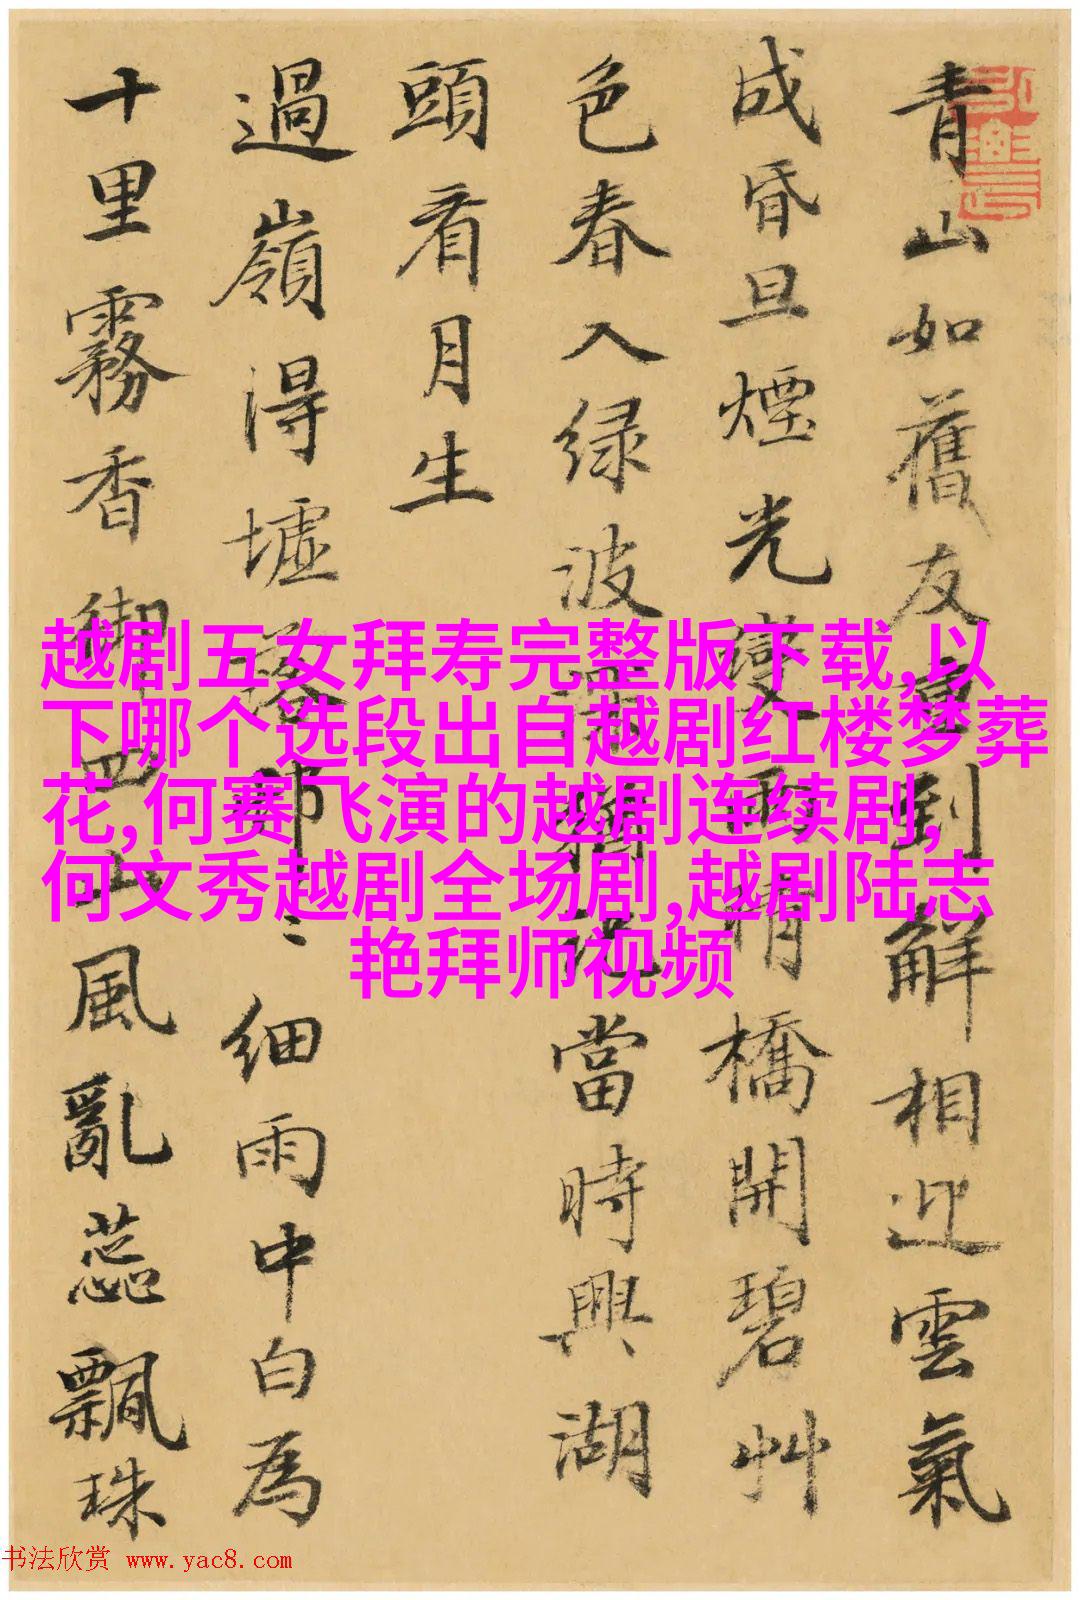 青山如舊友到解相迎雲氣
成昏旦煙光變雨晴橋開碧艸
色春入绿波猶記當時興湖
頭看月生
過嶺得墟落邨〻細雨中白為
十里霧香御四山風亂蕊飄珠
越剧五女拜寿完整版下载,以
下哪个选段出自越剧红楼梦葬
花,何赛飞演的越剧连续剧,
何文秀越剧全场剧,越剧陆志
艳拜师视频
书法欣赏 www.yac8.com